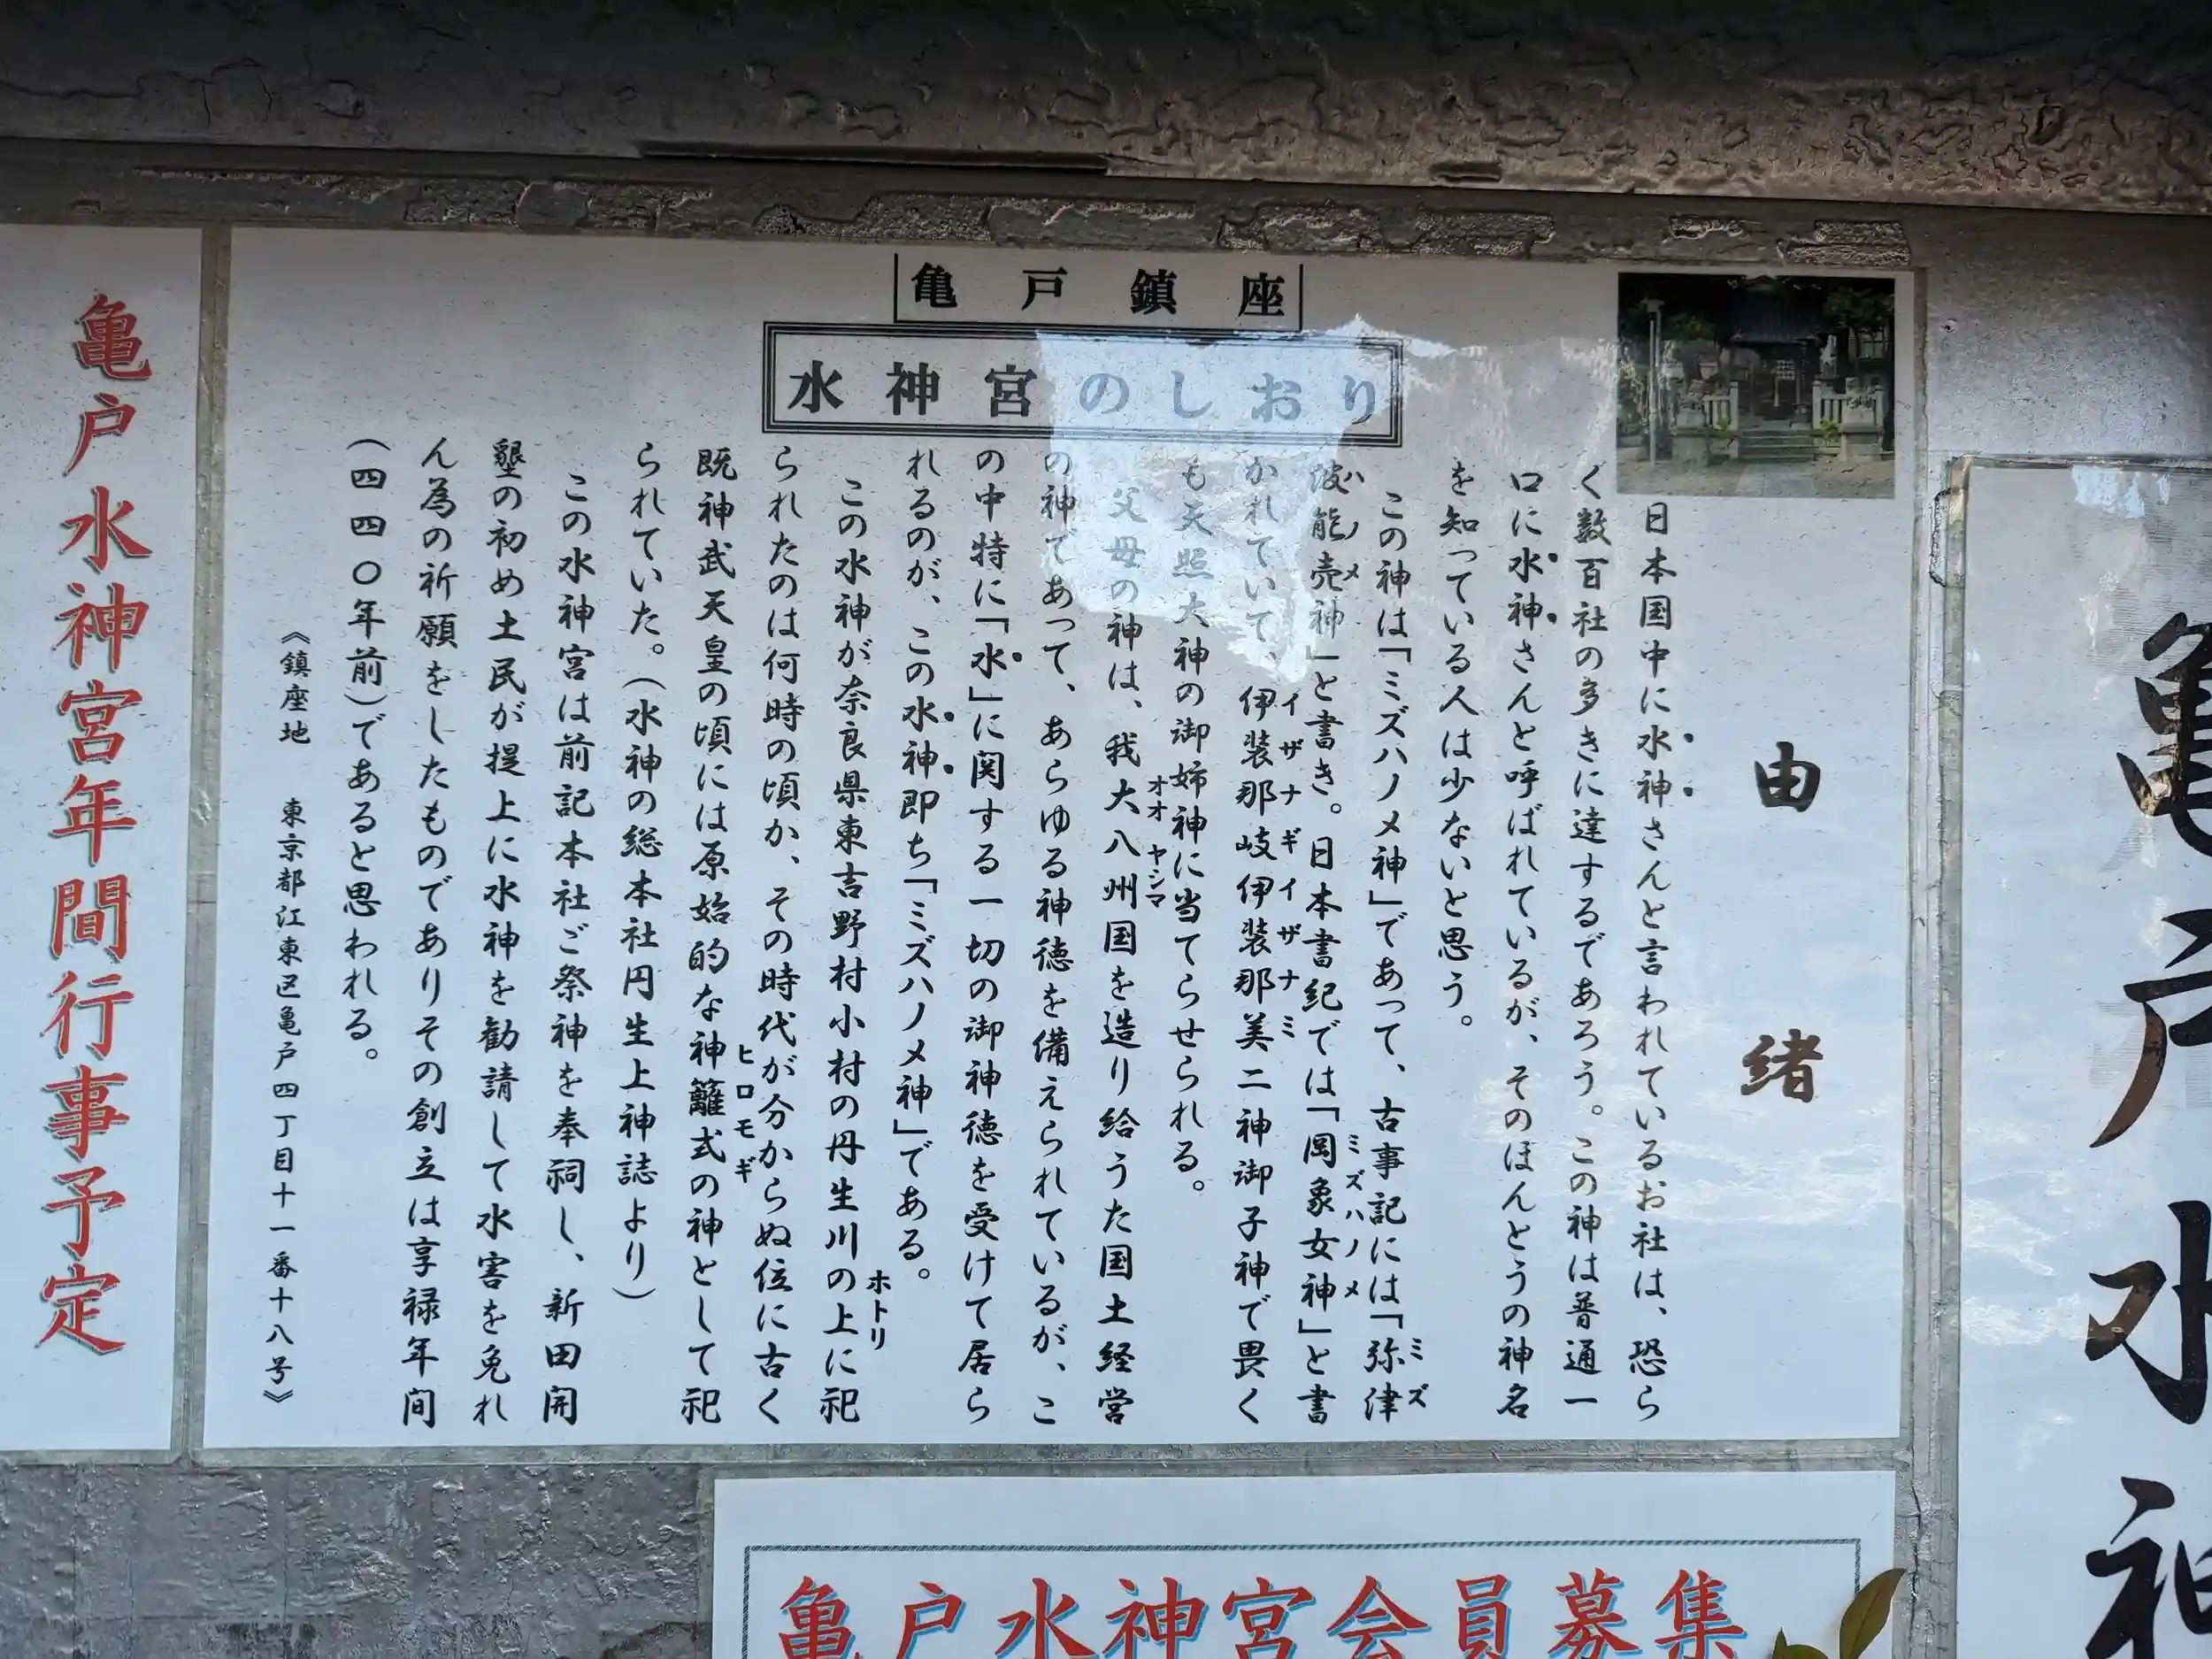 亀戸鎮座
水神宮のしおり
由緒
日本国中に水神さんと言われているお社は、恐ら
く数百社の多きに達するであろう。この神は普通一
口に水神さんと呼ばれているが、そのほんとうの神名
を知っている人は少ないと思う。
この神は「ミズハノメ神」であって、古事記には「弥津
ミズ
波能売神」と書き。日本書紀では「岡象女神」と書
ハノメ
ミズハノメ
かれていて、伊装那岐伊装那美二神御子神で畏く
イザナギイザナミ
も天照大神の御姉神に当てらせられる。
父母の神は、我大八州国を造り給うた国土経営
オオヤシマ
の神であって、あらゆる神徳を備えられているが、こ
の中特に「水」に関する一切の御神徳を受けて居ら
れるのが、この水神即ち「ミズハノメ神」である。
この水神が奈良県東吉野村小村の丹生川の上に祀
ホトリ
られたのは何時の頃か、その時代が分からぬ位に古く
既神武天皇の頃には原始的な神籬式の神として祀
ヒロモギ
られていた。（水神の総本社円生上神誌より）
この水神宮は前記本社ご祭神を奉祠し、新田開
墾の初め土民が提上に水神を勧請して水害を免れ
ん為の祈願をしたものでありその創立は享禄年間
（四四〇年前）であると思われる。
《鎮座地 東京都江東区亀戸四丁目十一番十八号》
亀戸水神宮年間行事予定
亀戸水神宮会員募集
亀戸水神